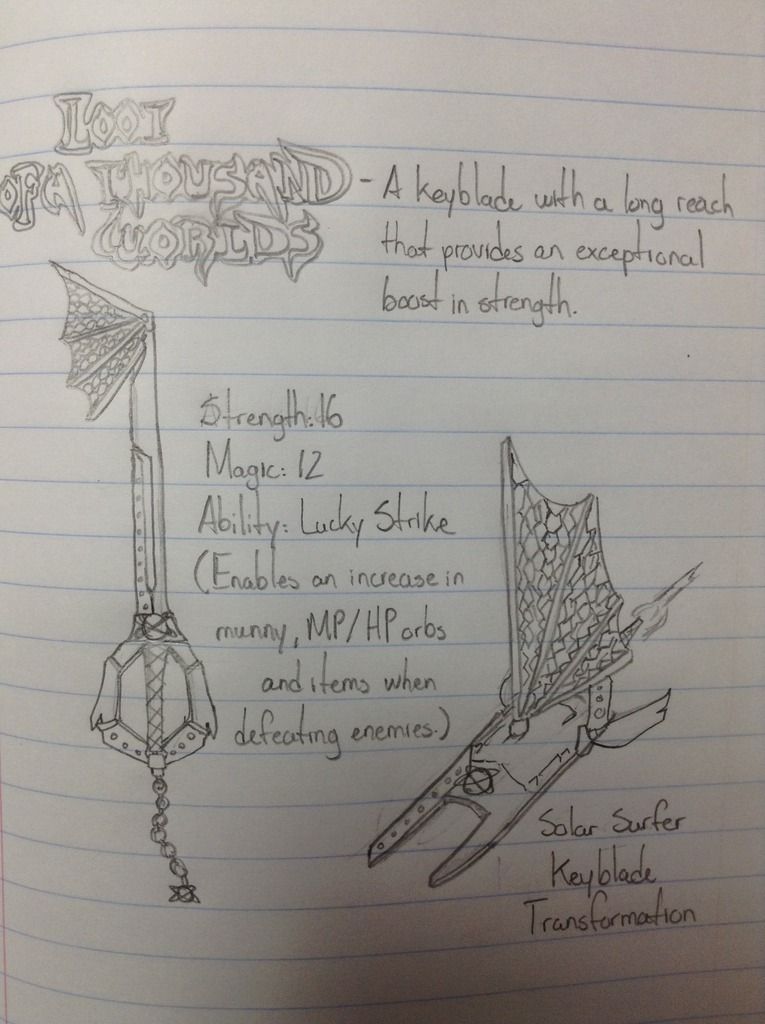 LOOT
OF A THOUSAND
WORLDS
- A keyblade with a long reach
that provides an exceptional
boost in strength.
Strength: 16
Magic: 12
Ability: Lucky Strike
(Enables an increase in
munny, MP/HP orbs
and items when
defeating enemies.)
Solar Surfer
Keyblade
Transformation